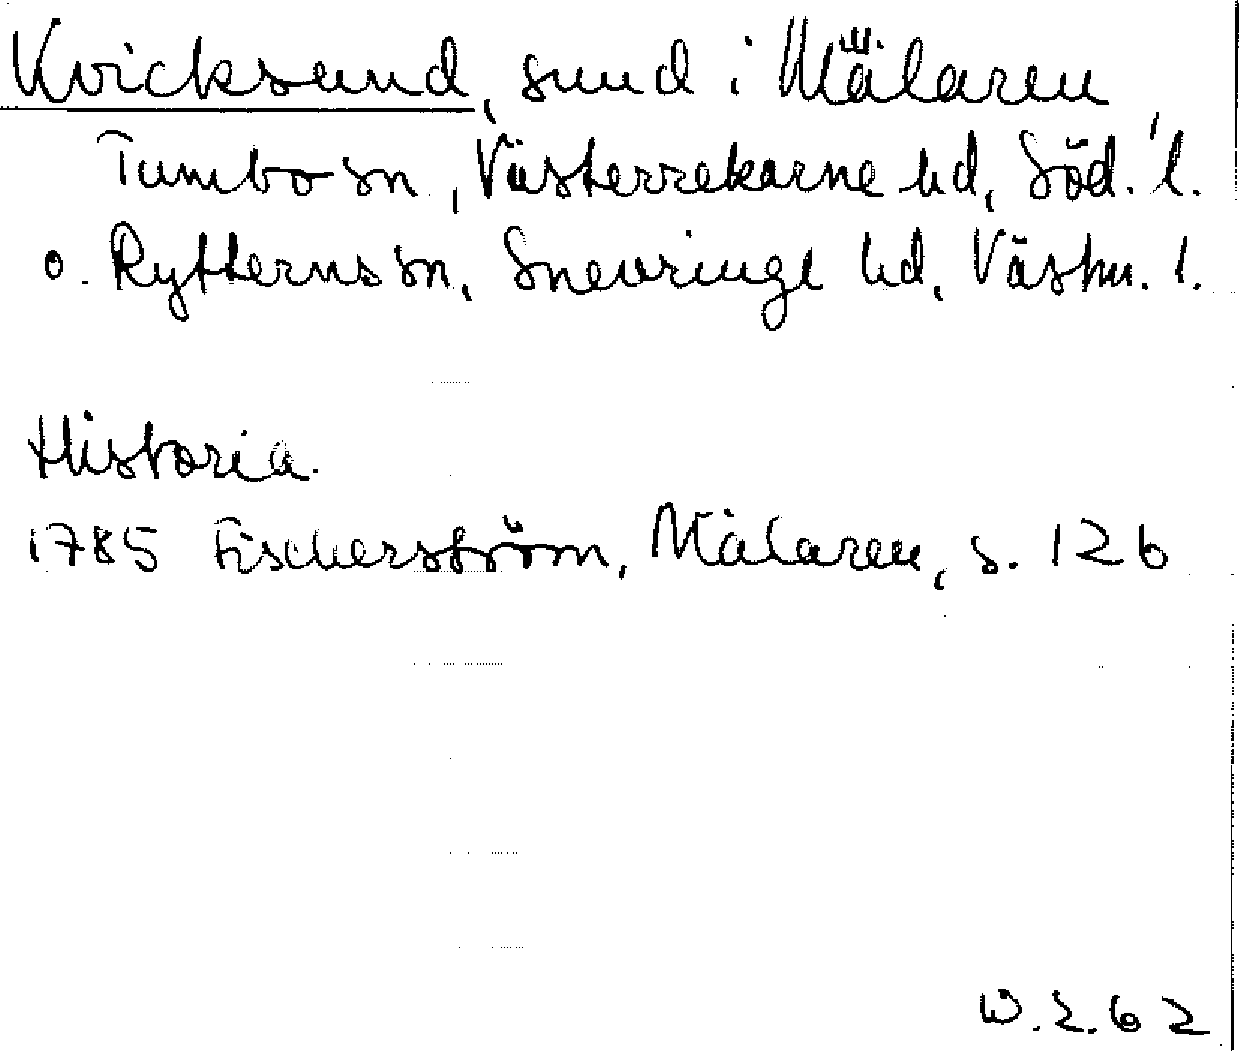 Kvicksund, sund i Mälaren
Tumbo sn, Västerrekarne hd, Söd. l.
o. Rytterns sn, Snevringe hd, Västm. l.
Historia.
1785 Fischerström, Mälaren, s. 126
W. 2. 62